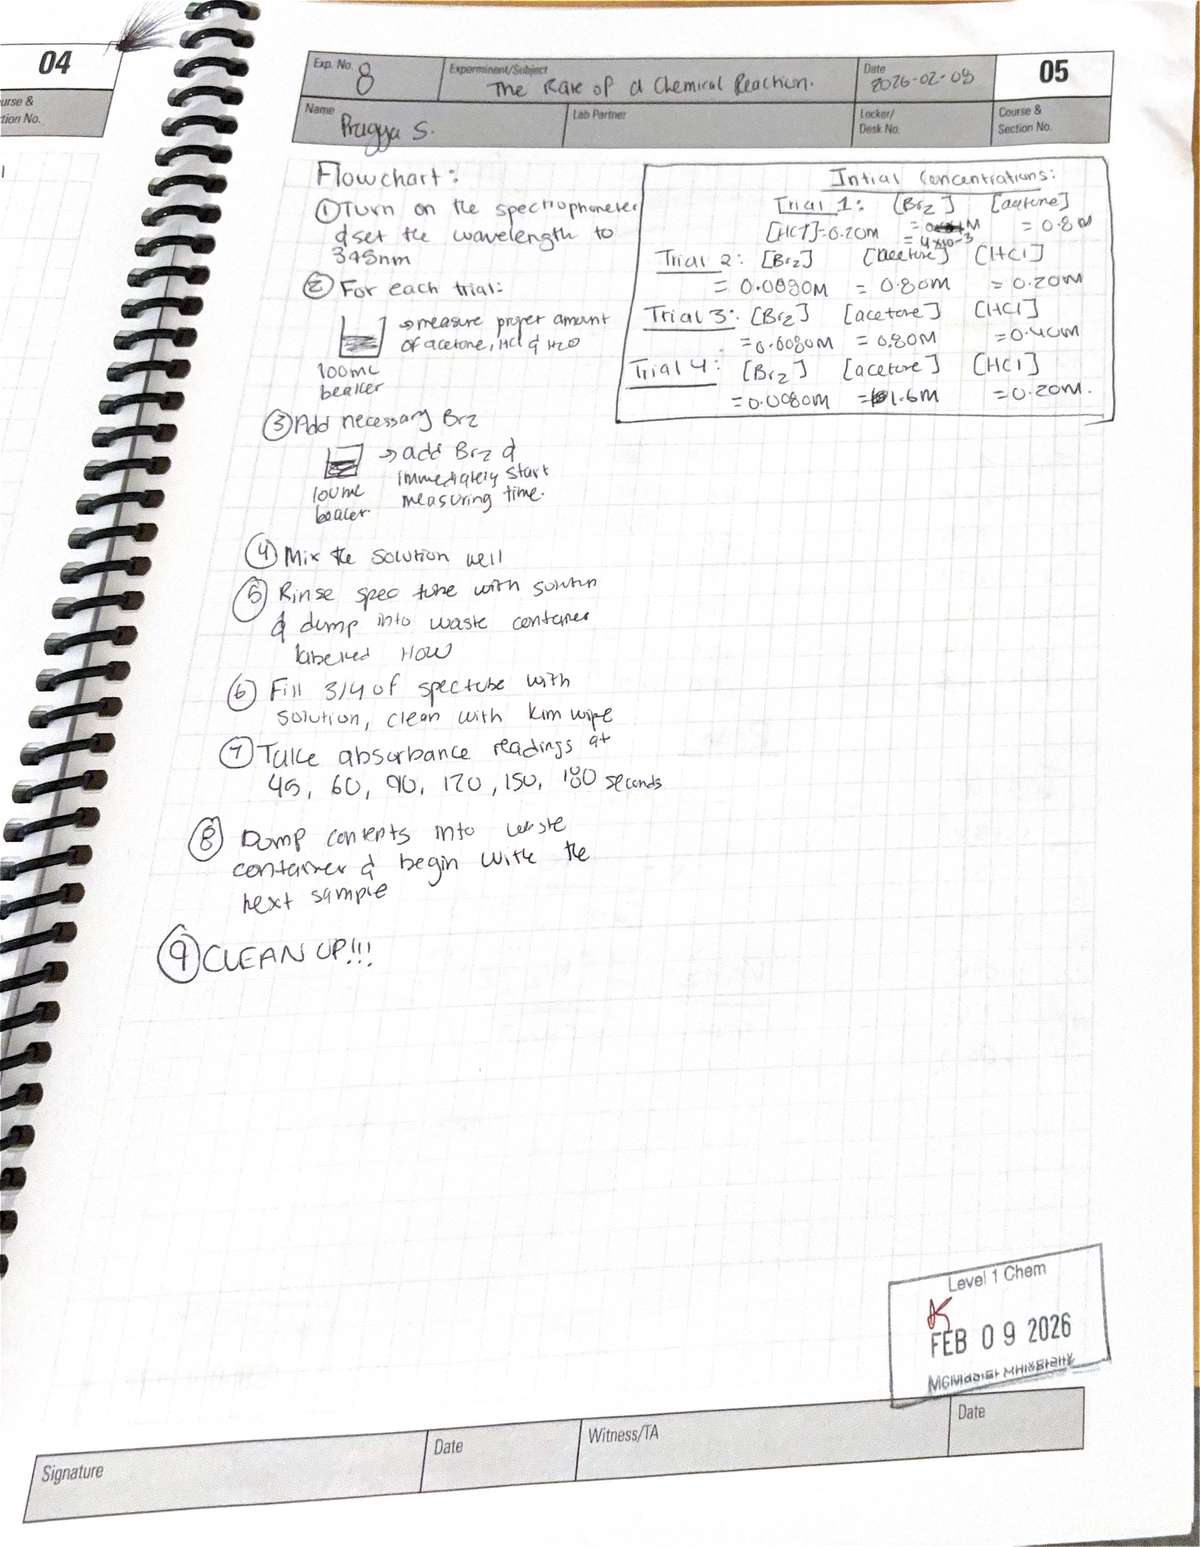 04
urse &
tion No.
Exp. No. 8
Experiment/Subject
The Rate of a Chemical Reaction.
Date
2026-02-08
05
Name
Pragya S.
Lab Partner
Locker/
Desk No.
Course &
Section No.
Flowchart:
① Turn on the spectrophometer
& set the wavelength to
395nm
② For each trial:
→ measure proper amount
of acetone, HCl & H2O
100mL
beaker
③ Add necessary Br2
→ add Br2 &
immediately start
measuring time.
100mL
beaker
④ Mix the solution well
⑤ Rinse spec tube with solution
& dump into waste container
labelled HOW
⑥ Fill 3/4 of spectube with
solution, clean with kim wipe
⑦ Take absorbance readings at
45, 60, 90, 120, 150, 180 seconds
⑧ Dump contents into waste
container & begin with the
next sample
⑨ CLEAN UP!!!
Intial Concentrations:
Trial 1: [Br2] [acetone]
[HCl]=0.20M = M = 0.8M
= 4x10-3
Trial 2: [Br2] [acetone] [HCl]
= 0.0080M = 0.80M = 0.20M
Trial 3: [Br2] [acetone] [HCl]
= 0.0080M = 0.80M = 0.40M
Trial 4: [Br2] [acetone] [HCl]
= 0.0080M = 1.6M = 0.20M.
Level 1 Chem
FEB 09 2026
Signature
Date
Witness/TA
Date